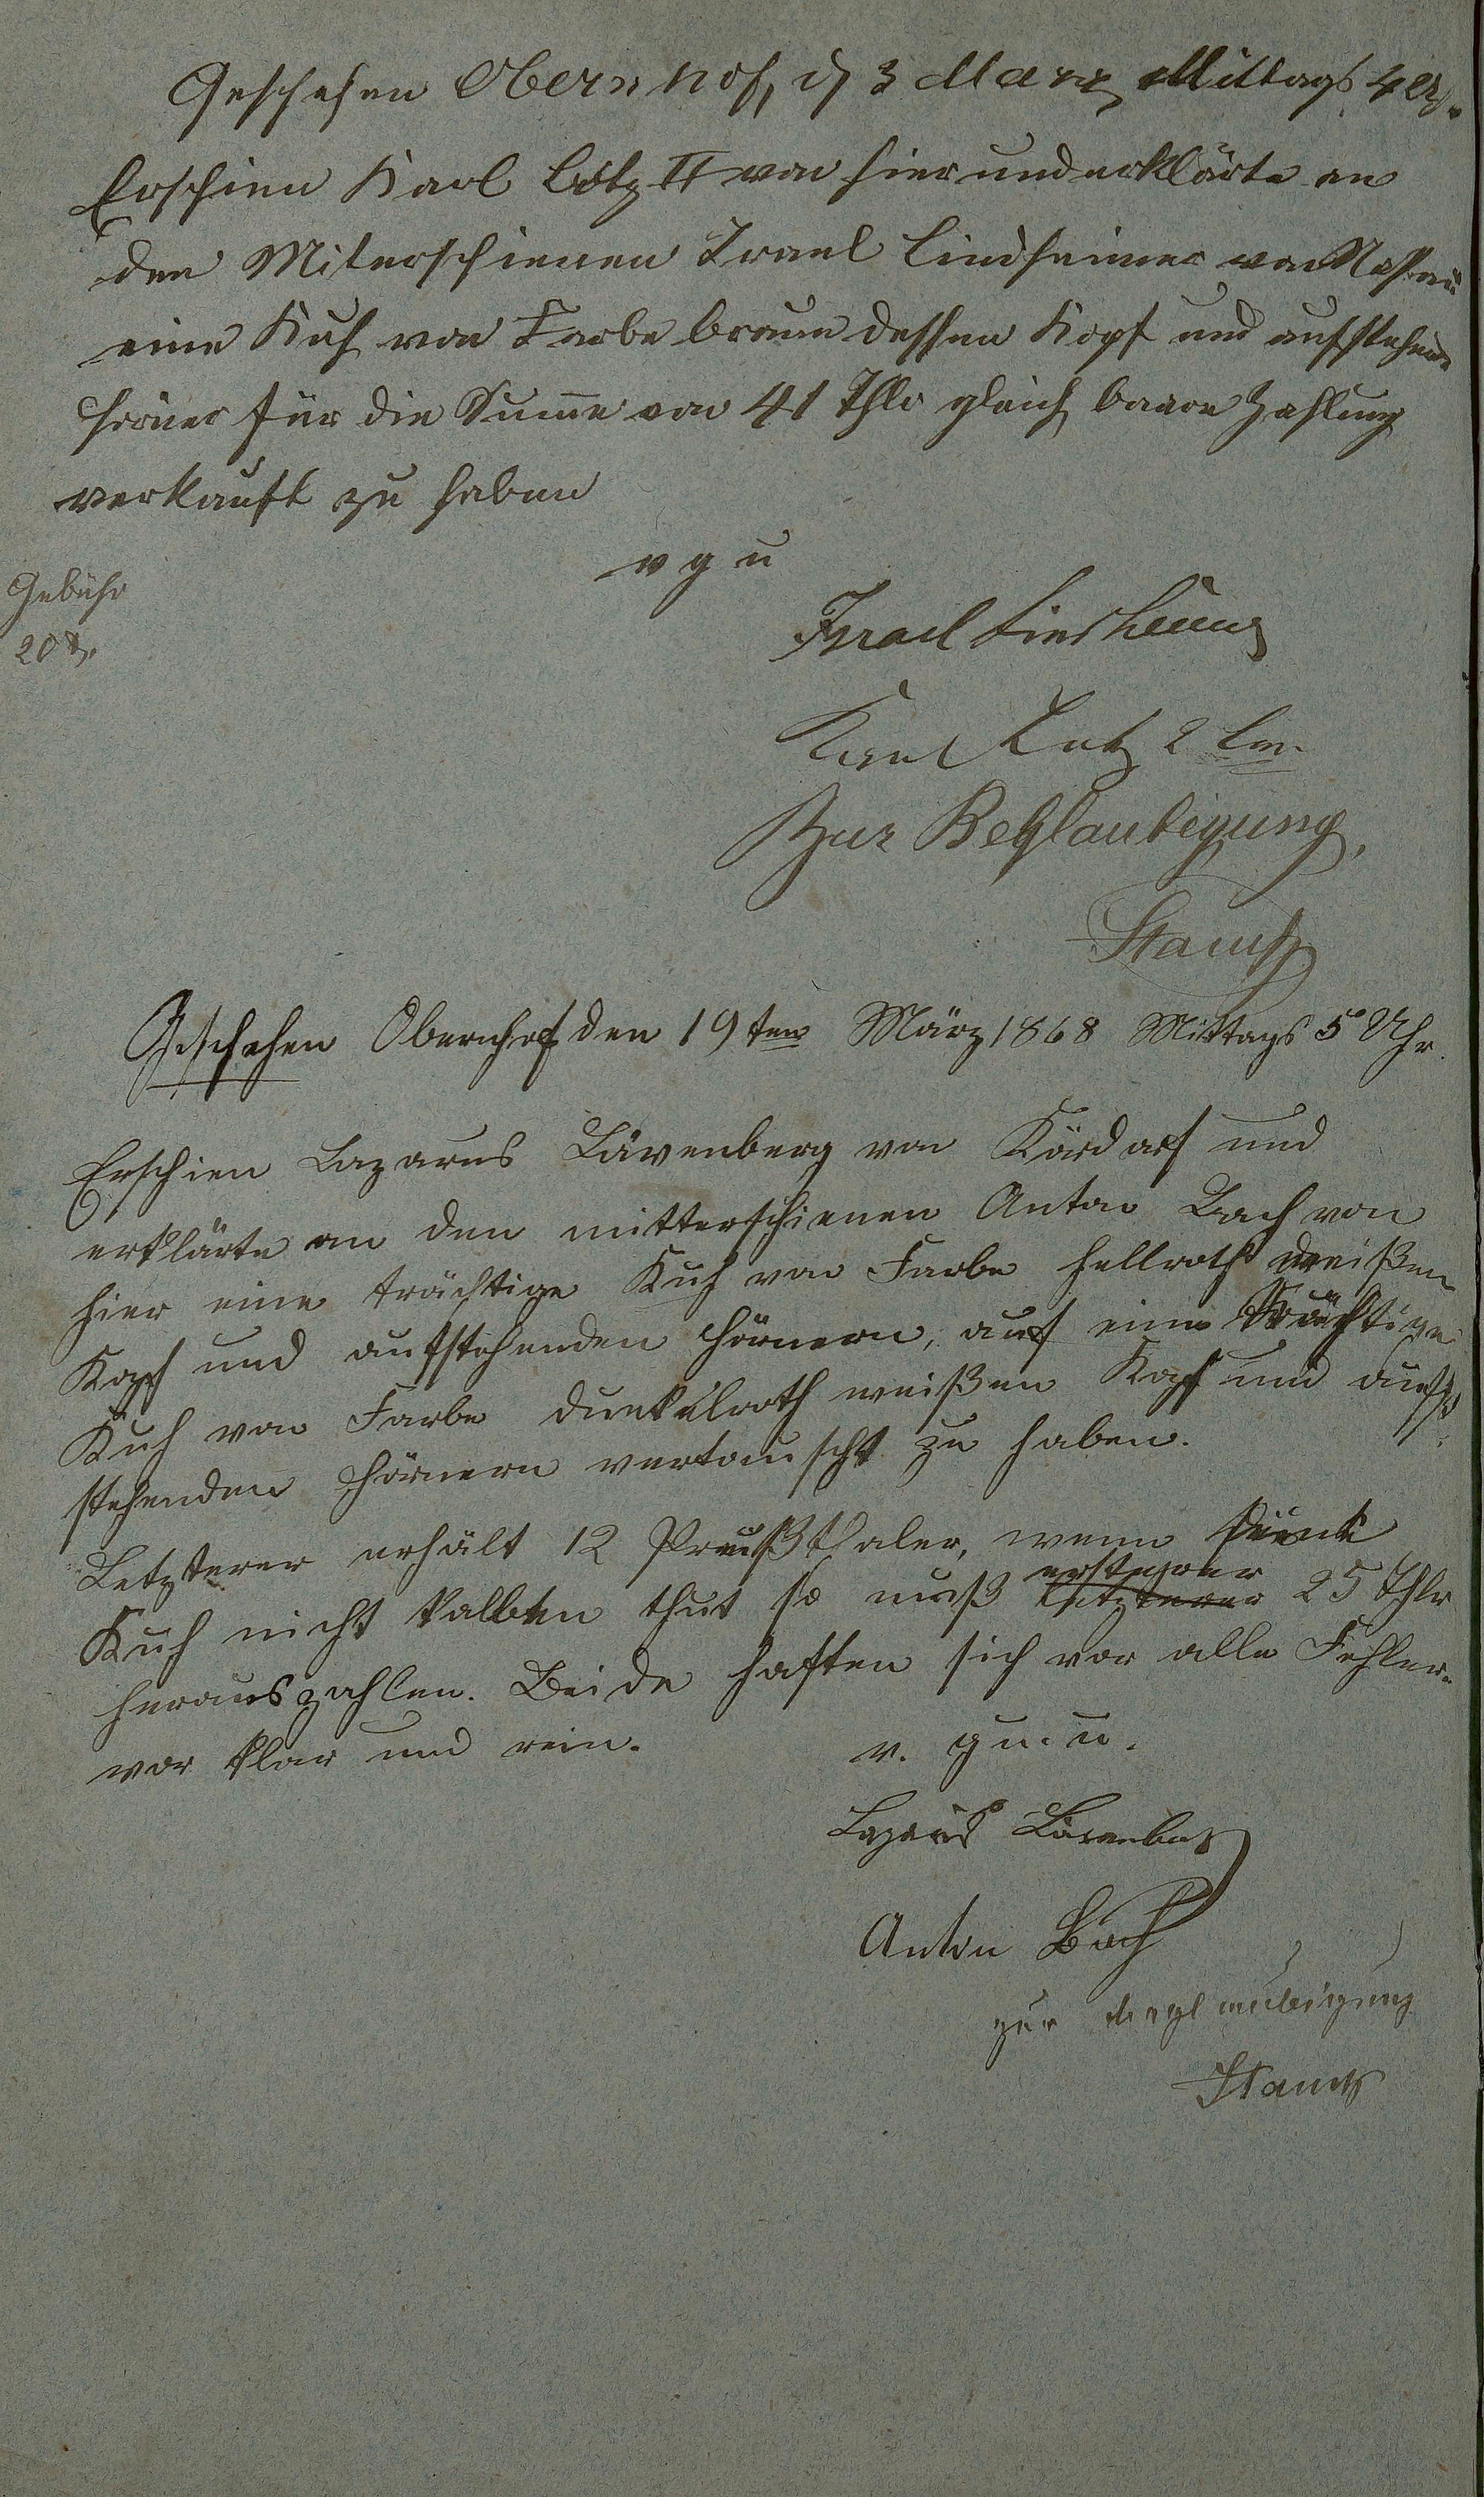 Geschehen Obernhof, d 3 März Mittags 4 U.
Erschien Karl Lotz II von hier und erklärte an
den Miterschienen Israel Lindheimer von Nassau
eine Kuh von Farbe braun dessen Kopf und aufstehende
Hörner für die Sume von 41 Thlr gleich baare Zahlung
verkauft zu haben
v g u
Gebühr
20
Israel Lindheimer
Karl Lotz 2
Zur Beglaubigung,
Geschehen Obernhof den 19ten März 1868 Mittags 5 Uhr.
Erschien Lazarus Lövenberg von Kördorf und
erklärte an den mitterschienen Anton Bach von
hier eine trächtige Kuh von Farbe hellroth weißen
Kopf und aufstehenden Hörnern, auf eine trächtige
Kuh von Farbe dunkelroth weißen Kopf und auf
stehenden Hörnern vertauscht zu haben.
Letzterer erhält 12 Preußthaler, wenn
Kuh nicht kalben thut so muß letzterer ersterer 25 Thlr
herauszahlen. Beide haften sich vor alle Fehler.
vor klar und rein.
v. g u. u.
Lazarus Lövenberg
Anton Bach
zur Beglaubigung